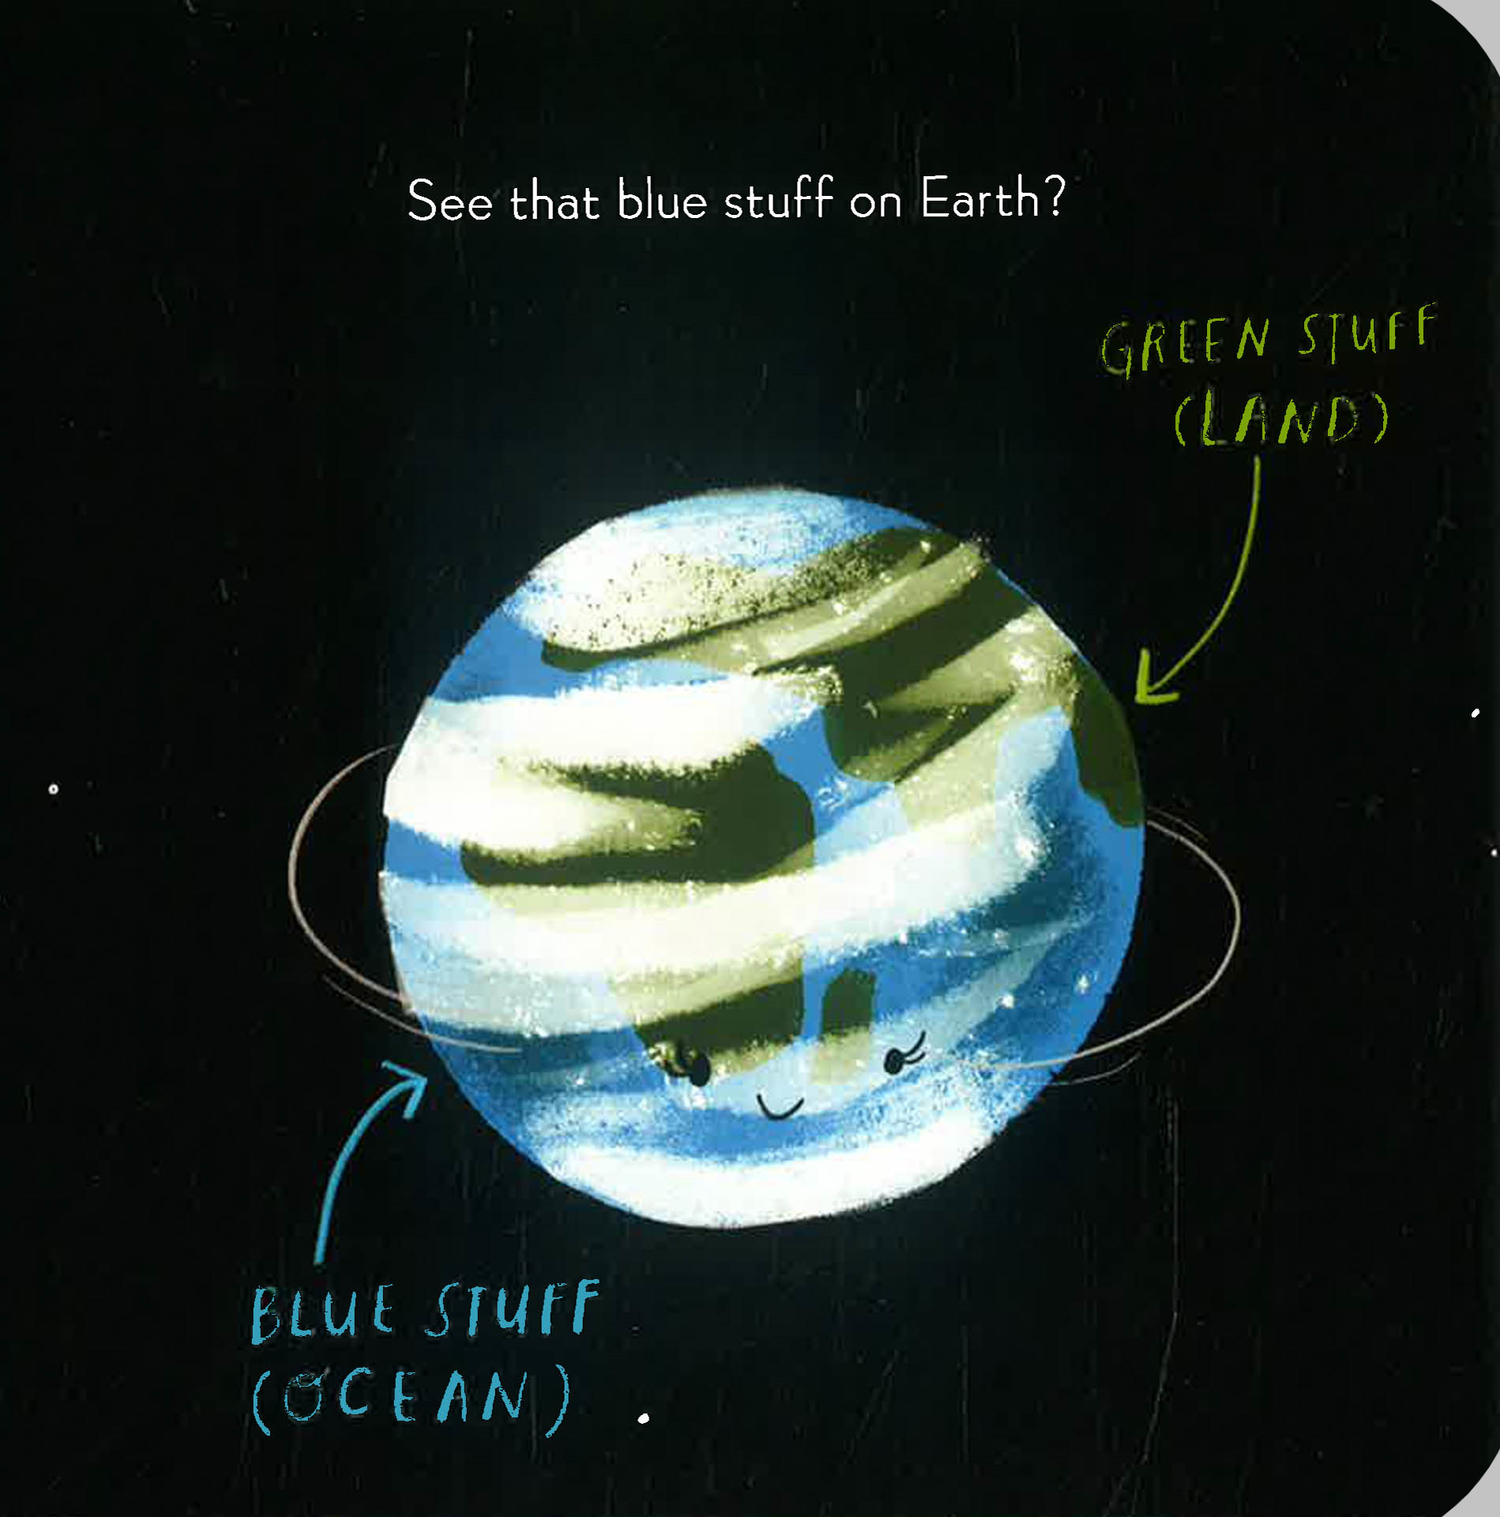 See that blue stuff on Earth?
GREEN STUFF
(LAND)
BLUE STUFF
(OCEAN)